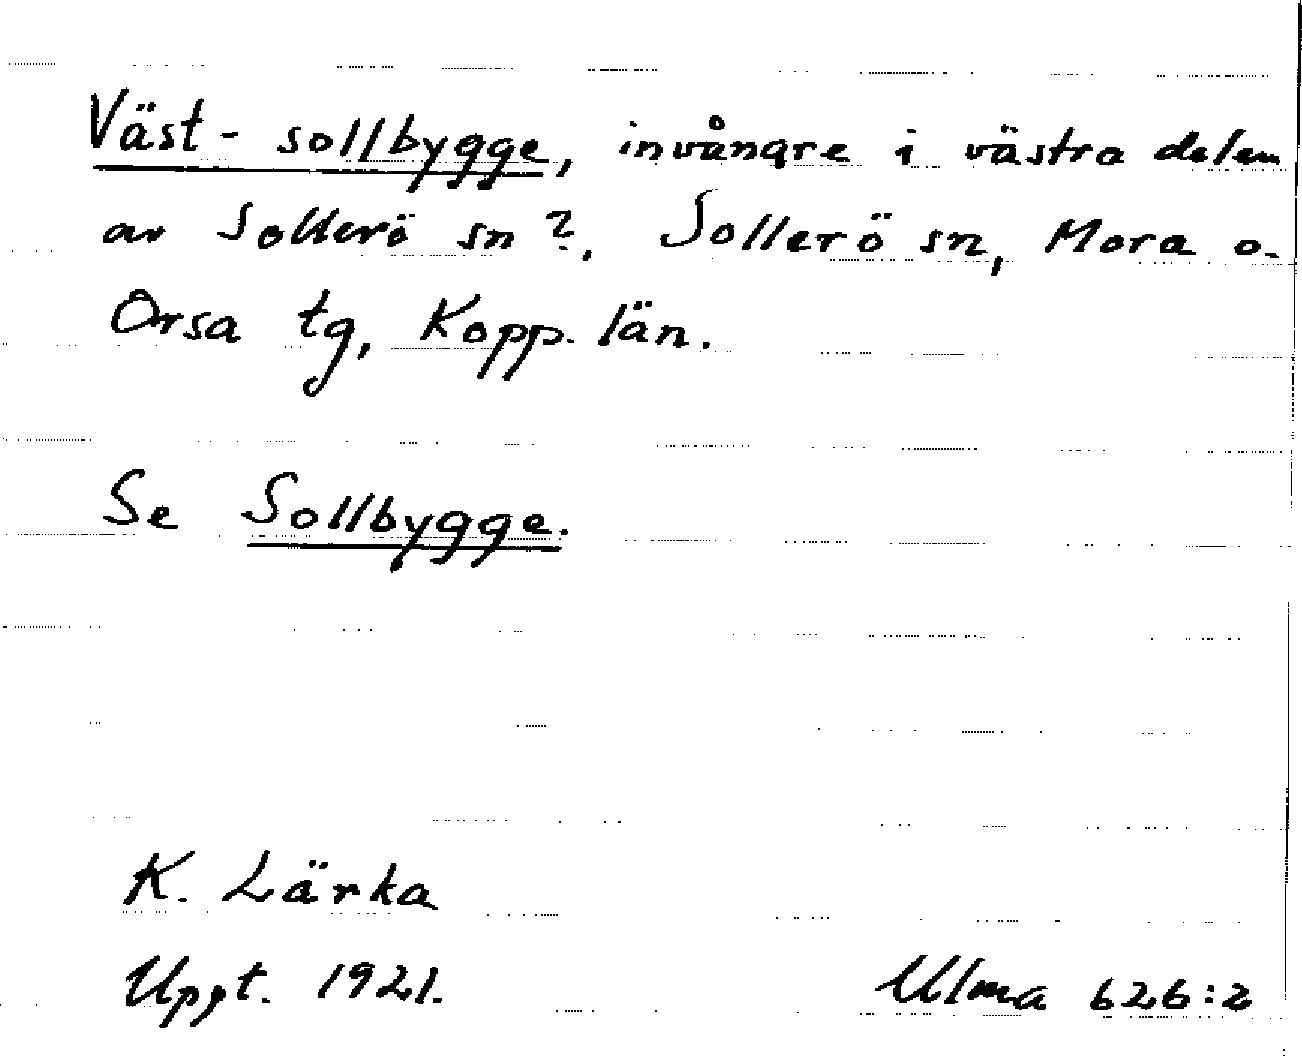 Väst-sollbygge, invånare i västra delen
av Sollerö sn?, Sollerö sn, Mora o.
Orsa tg, Kopp. län.
Se Sollbygge.
K. Lärka
Uppt. 1921.
Ulma 626:2